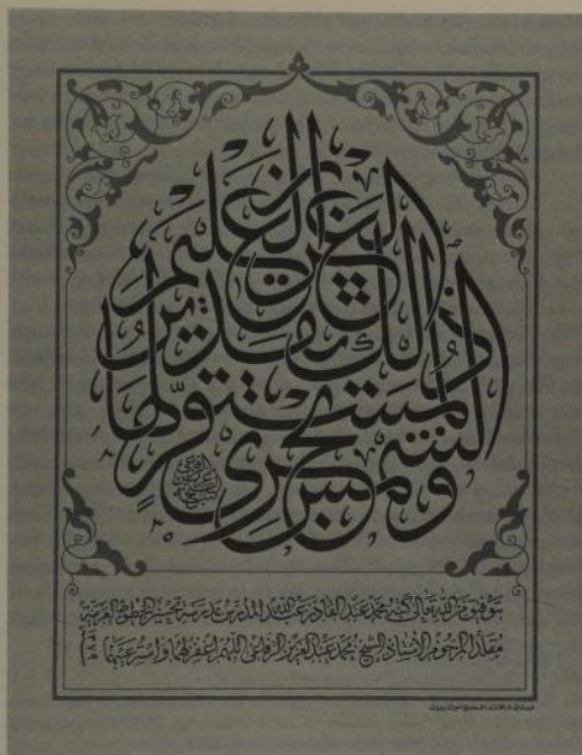 والشمس تجري لمستقر لها ذلك تقدير العزيز العليم
بتوفيق من الله تعالى كتبه محمد عبد القادر عبد الله المدرس بمدرسة تحسين الخطوط العربية
مقلدا المرحوم الأستاذ الشيخ محمد عبد العزيز الرفاعي اللهم اغفر لهما واستر عيبهما ١٣٧٩